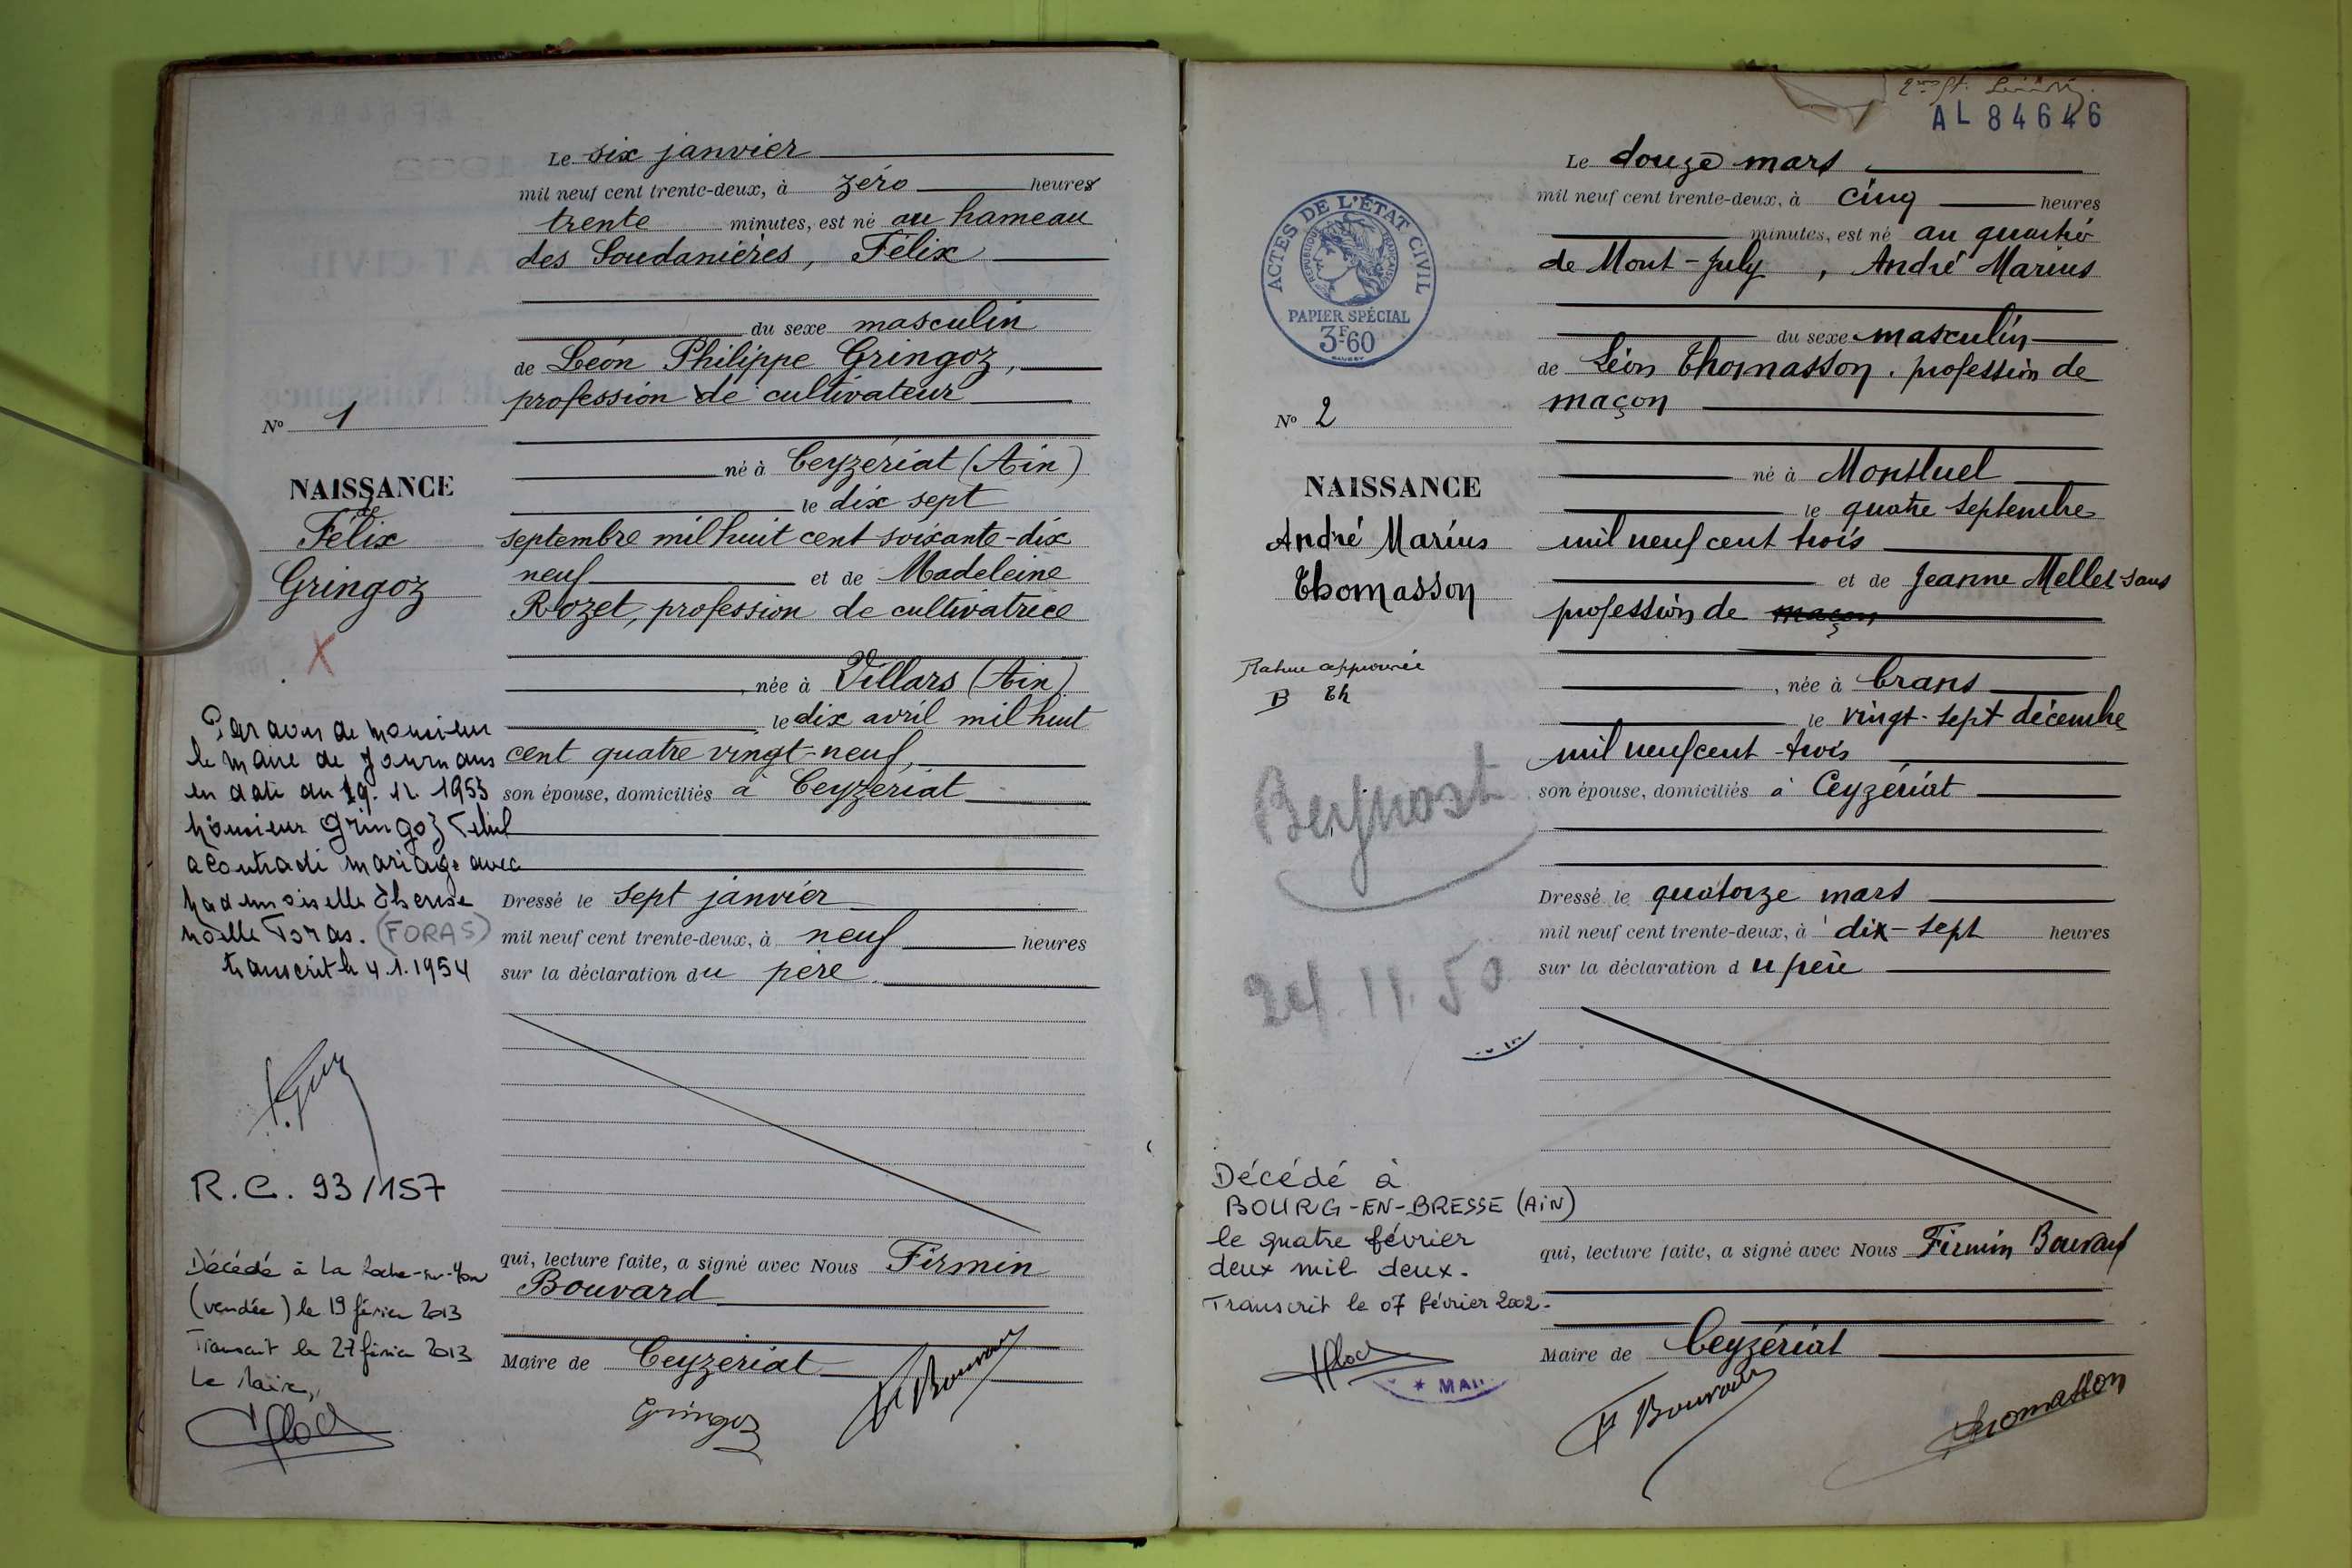 Le six janvier
mil neuf cent trente-deux, à zéro heures
trente minutes, est né au hameau
des Soudanières, Félix
du sexe masculin
de Léon Philippe Gringoz,
profession de cultivateur
né à Ceyzériat (Ain)
le dix sept
septembre mil huit cent soixante-dix
neuf et de Madeleine
Rozet, profession de cultivatrice
née à Villars (Ain)
le dix avril mil huit
cent quatre vingt-neuf,
son épouse, domiciliés à Ceyzériat
Dressé le sept janvier
mil neuf cent trente-deux, à neuf heures
sur la déclaration du père.
qui, lecture faite, a signé avec Nous Firmin
Bouvard
Maire de Ceyzeriat
Gringoz
F Bouvard
No 1
NAISSANCE
Félix
Gringoz
X
Par avis de Monsieur
le maire de Journans
en date du 19. 12. 1953
Monsieur Gringoz
a contracté mariage avec
Mademoiselle Therese
Noëlle Foras. (FORAS)
transcrit le 4.1.1954
R.C. 93/157
Décédé à La Roche-sur-Yon
(vendée) le 19 février 2013
Transcrit le 27 février 2013
Le Maire,
AL 84646
ACTES DE L'ÉTAT CIVIL
RÉPUBLIQUE FRANÇAISE
PAPIER SPÉCIAL
3F60
Le douze mars
mil neuf cent trente-deux, à cinq heures
minutes, est né au quartié
de Mont-July, André Marius
du sexe masculin
de Léon Thomasson. profession de
maçon
né à Montluel
le quatre septembre
mil neuf cent trois
et de Jeanne Mellet sans
profession de maçon
, née à Crans
le vingt-sept décembre
mil neuf cent-trois
son épouse, domiciliés à Ceyzériat
Dressé le quatorze mars
mil neuf cent trente-deux, à dix-sept heures
sur la déclaration du père
qui, lecture faite, a signé avec Nous Firmin Bouvard
Maire de Ceyzériat
F Bouvard
Thomasson
No 2
NAISSANCE
André Marius
Thomasson
Rature approuvée
B Th
Beynost
24.11.50
Décédé à
BOURG-EN-BRESSE (AIN)
le quatre février
deux mil deux.
Transcrit le 07 février 2002.
* MAI